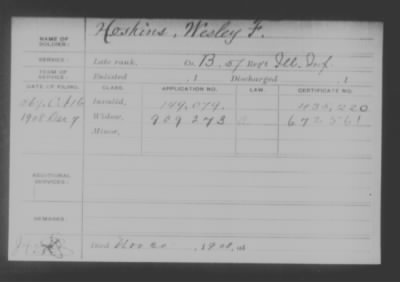 NAME OF SOLDIER: Hoskins, Wesley F.
SERVICE: Late rank, Co. B, 57 Reg't Ill. Inf
TERM OF SERVICE: Enlisted , 1 Discharged , 1
DATE OF FILING. CLASS. APPLICATION NO. LAW. CERTIFICATE NO.
Invalid, 144,074.
1908 Dec 9 Widow, 909273 672561
Minor,
ADDITIONAL SERVICES:
REMARKS:
Died Nov 20, 1908, at